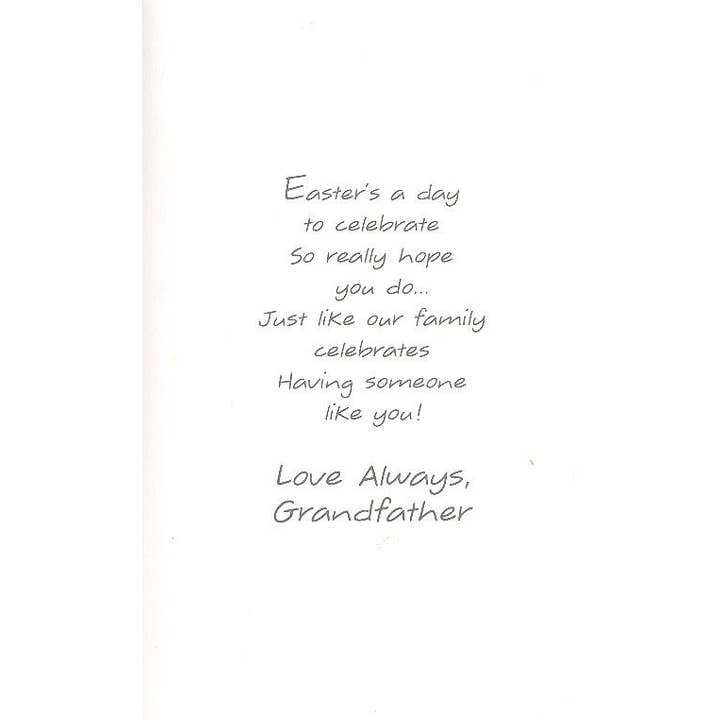 Easter's a day
to celebrate
So really hope
you do...
Just like our family
celebrates
Having someone
like you!
Love Always,
Grandfather